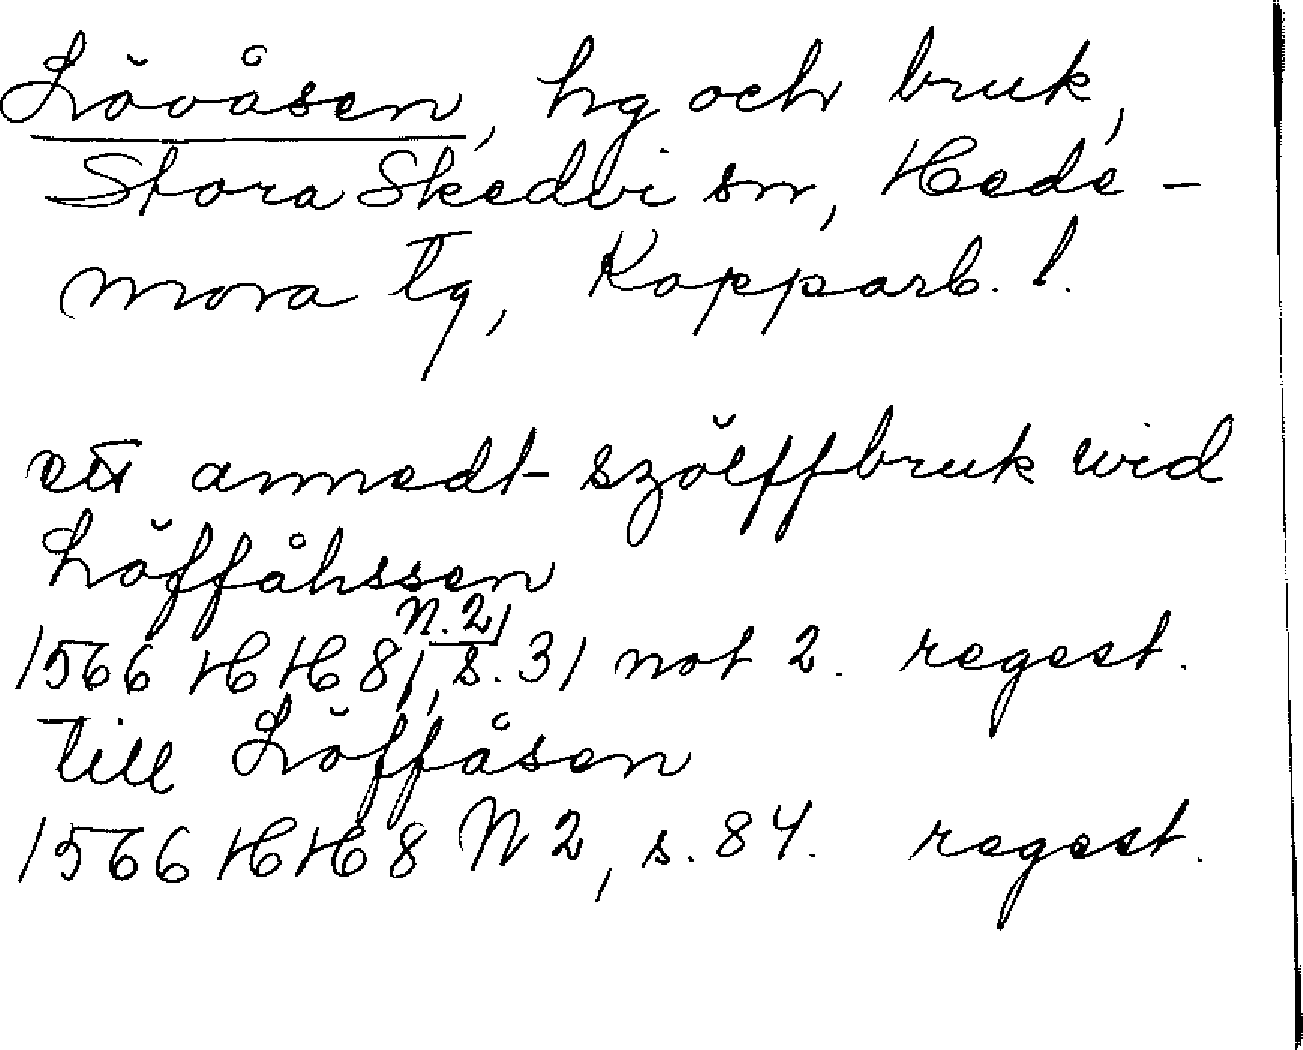 Lövåsen, hg och bruk,
Stora Skedvi sn, Hede-
mora tg, Kopparb. l.
ett annedt szölffbruk wid
Löffåhssen
1566 HH 8, N. 2, s. 31 not 2. regest.
till Löffåsen
1566 HH 8 N 2, s. 84. regest.